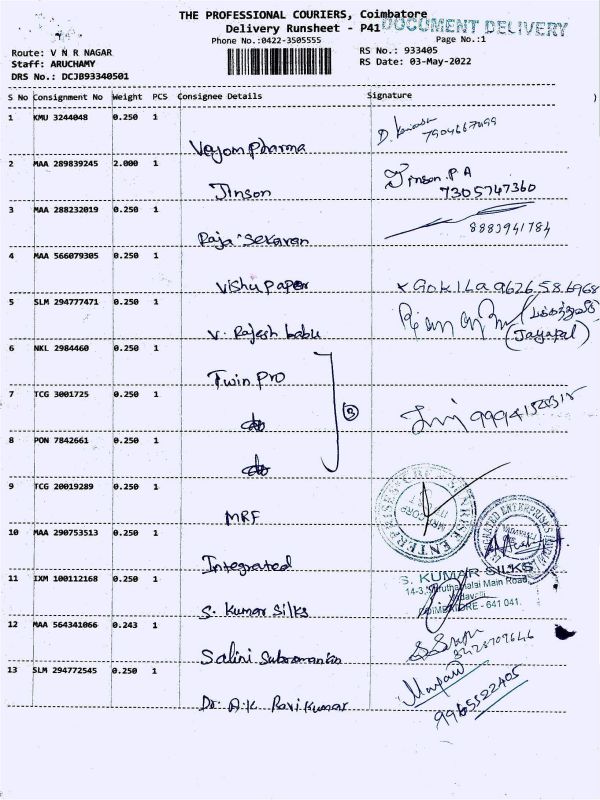 THE PROFESSIONAL COURIERS, Coimbatore
Delivery Runsheet - P41
DOCUMENT DELIVERY
Phone No.:0422-3505555
Page No.:1
Route: V N R NAGAR
RS No.: 933405
Staff: ARUCHAMY
RS Date: 03-May-2022
DRS No.: DCJB93340501
S No Consignment No Weight PCS Consignee Details Signature
1 KMU 3244048 0.250 1
7904667099
Veyom Pharma
2 MAA 289839245 2.000 1
Jinson
Jinson.P A
7305747360
3 MAA 288232019 0.250 1
Raja Sekaran
8883941784
4 MAA 566079305 0.250 1
Vishu Paper
x Gokila 9626586968
5 SLM 294777471 0.250 1
V. Rajesh babu
(Jayapal)
6 NKL 2984460 0.250 1
Twin Pro
7 TCG 3001725 0.250 1
do
3
8 PON 7842661 0.250 1
do
9 TCG 20019289 0.250 1
MRF
10 MAA 290753513 0.250 1
Integrated
11 IXM 100112168 0.250 1
S. Kumar Silks
S. KUMAR SILKS
14-3, Maruthamalai Main Road,
Vadavalli
COIMBATORE - 641 041.
12 MAA 564341066 0.243 1
Salini Subromanian
13 SLM 294772545 0.250 1
Dr. A.K Ravikumar
9965522405